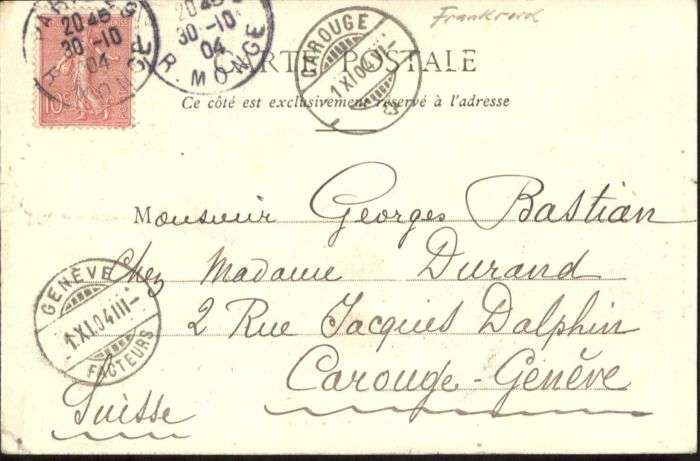 Frankreich
20 45
30 -10
04
R. MONGE
20 45
30 -10
04
R. MONGE
10c
CAROUGE
1 XI 04 VI
CARTE POSTALE
Ce côté est exclusivement réservé à l'adresse
Monsieur Georges Bastian
Chez Madame Durand
2 Rue Jacques Dalphin
Carouge-Genève
Suisse
GENÈVE
1.XI.04 III-
FACTEURS